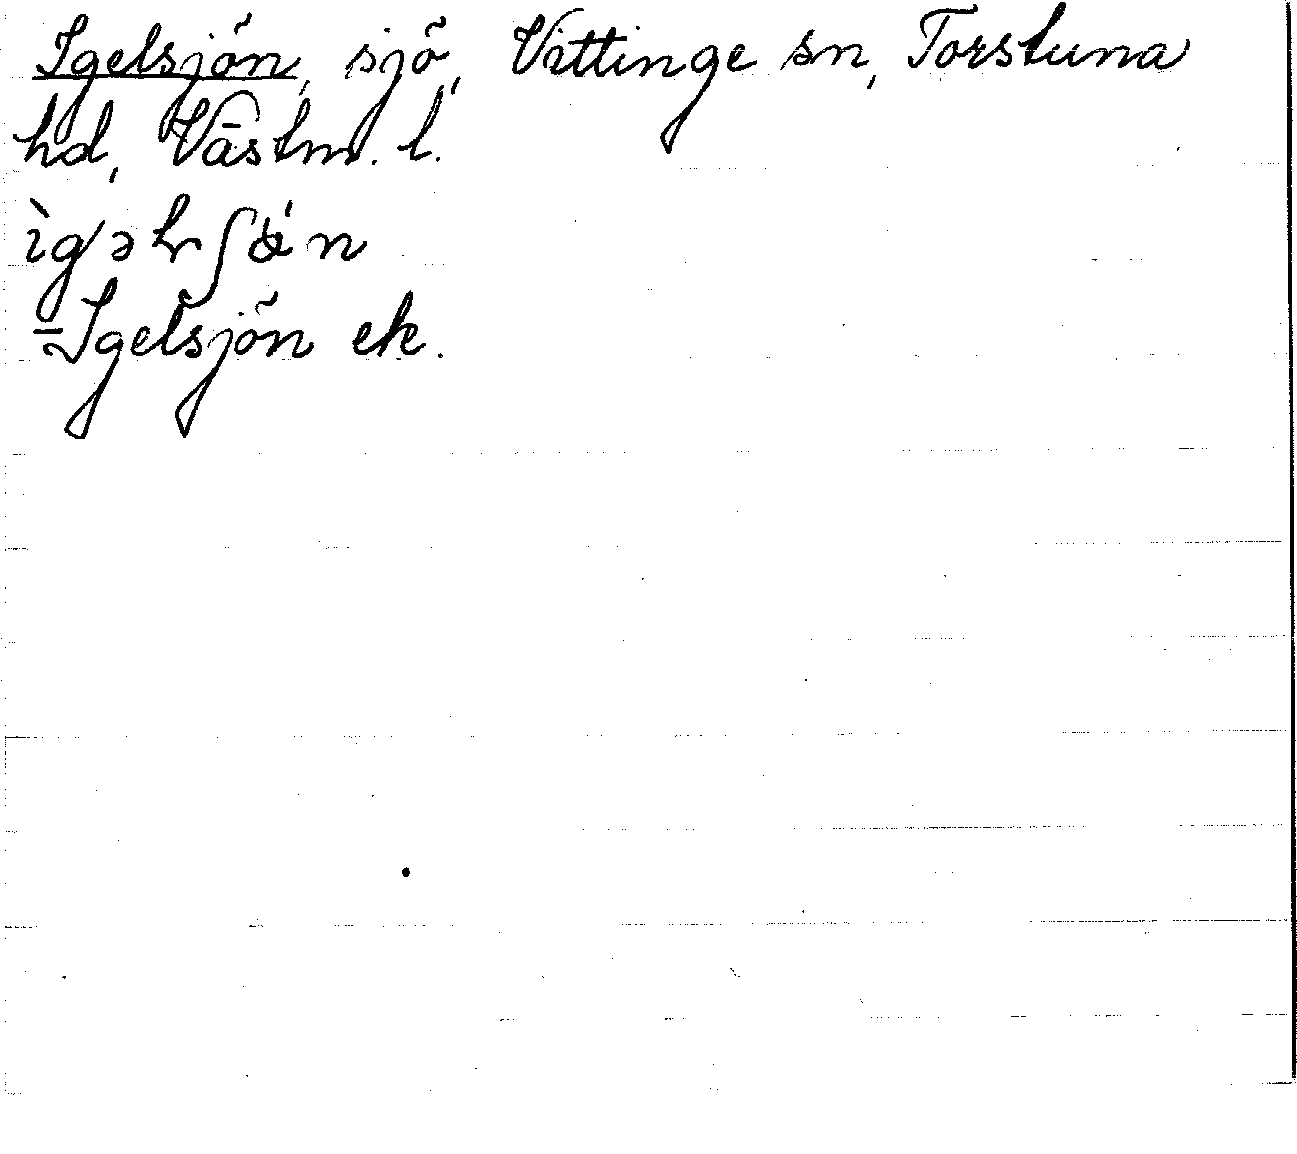 Igelsjön, sjö, Vittinge sn, Torstuna
hd, Västm. l.
Igelsjön ek.